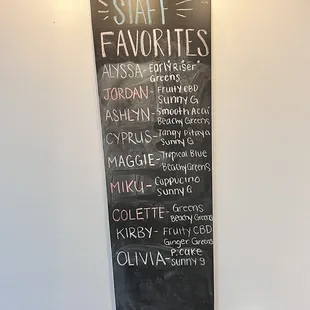 STAFF
FAVORITES
ALYSSA- Early Riser
Greens
JORDAN- Fruity CBD
Sunny G
ASHLYN- Smooth Acai
Beachy Greens
CYPRUS- Tangy Pitaya
Sunny G
MAGGIE- Tropical Blue
Beachy Greens
MIKU- Cappucino
Sunny G
COLETTE- Greens
Beachy Greens
KIRBY- Fruity CBD
Ginger Greens
OLIVIA- P.cake
Sunny g